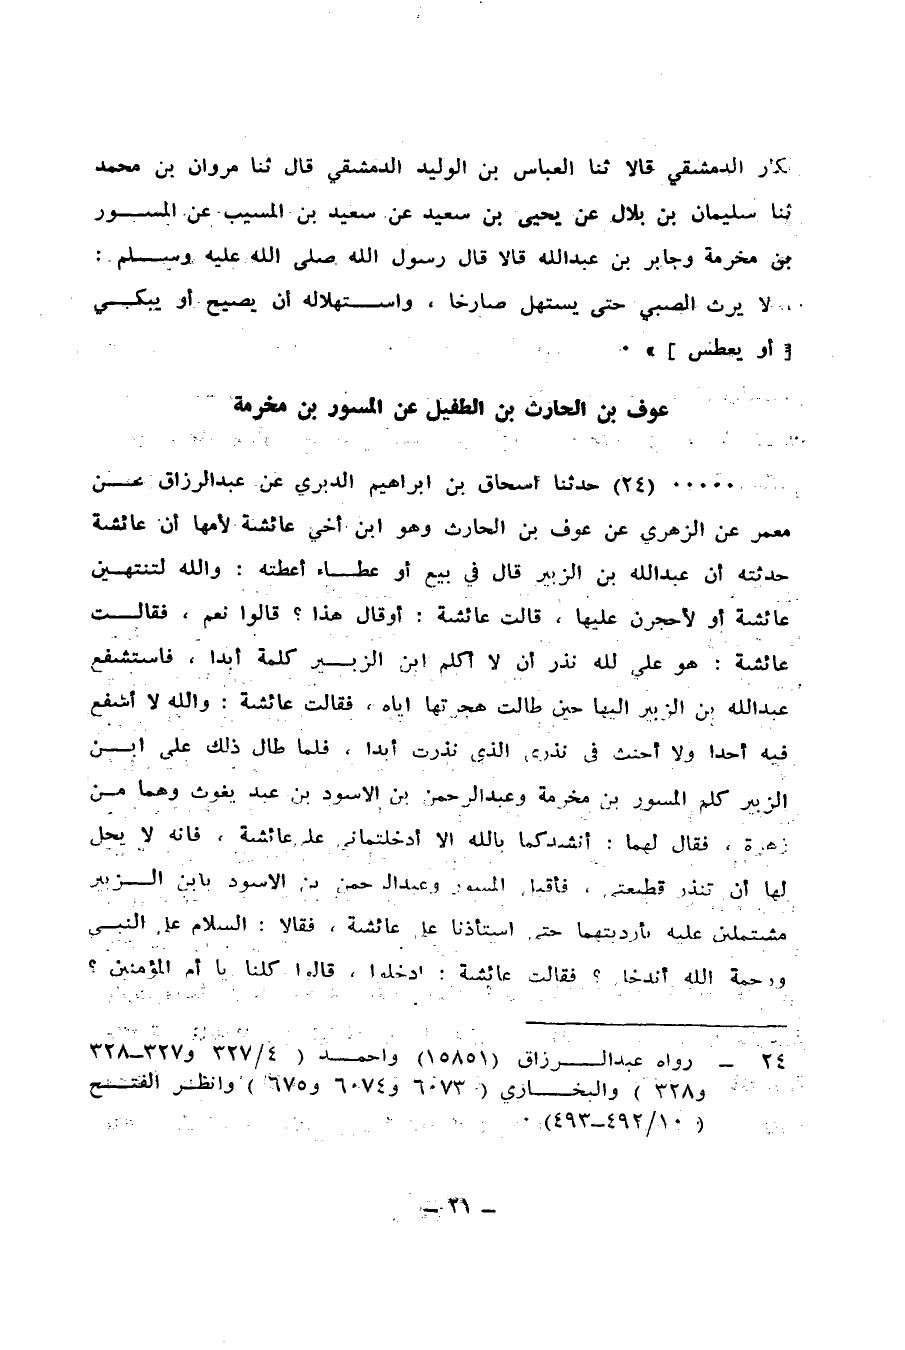 بكار الدمشقي قالا ثنا العباس بن الوليد الدمشقي قال ثنا مروان بن محمد
ثنا سليمان بن بلال عن يحيى بن سعيد عن سعيد بن المسيب عن المسور
بن مخرمة وجابر بن عبدالله قالا قال رسول الله صلى الله عليه وسلم :
لا يرث الصبي حتى يستهل صارخا ، واستهلاله أن يصيح أو يبكي
[ أو يعطس ] » .
عوف بن الحارث بن الطفيل عن المسور بن مخرمة
..... (٢٤) حدثنا اسحاق بن ابراهيم الدبري عن عبدالرزاق عن
معمر عن الزهري عن عوف بن الحارث وهو ابن أخي عائشة لأمها أن عائشة
حدثته أن عبدالله بن الزبير قال في بيع أو عطاء أعطته : والله لتنتهين
عائشة أو لأحجرن عليها ، قالت عائشة : أوقال هذا ؟ قالوا نعم ، فقالت
عائشة : هو علي لله نذر أن لا أكلم ابن الزبير كلمة أبدا ، فاستشفع
عبدالله بن الزبير اليها حين طالت هجرتها اياه ، فقالت عائشة : والله لا أشفع
فيه أحدا ولا أحنث في نذري الذي نذرت أبدا ، فلما طال ذلك على ابن
الزبير كلم المسور بن مخرمة وعبدالرحمن بن الاسود بن عبد يغوث وهما من
زهرة ، فقال لهما : أنشدكما بالله الا أدخلتماني على عائشة ، فانه لا يحل
لها أن تنذر قطيعتي ، فأقبل المسور وعبدالرحمن بن الاسود بابن الزبير
مشتملين عليه بأرديتهما حتى استأذنا على عائشة ، فقالا : السلام على النبي
ورحمة الله أندخل ؟ فقالت عائشة : ادخلوا ، قالوا كلنا يا أم المؤمنين ؟
٢٤ – رواه عبدالرزاق (١٥٨٥١) واحمد ( ٣٢٧/٤ و٣٢٧–٣٢٨
و٣٢٨ ) والبخاري ( ٦٠٧٣ و٦٠٧٤ و٦٧٥ ) وانظر الفتح
( ٤٩٢/١٠–٤٩٣) .
– ٢١ –